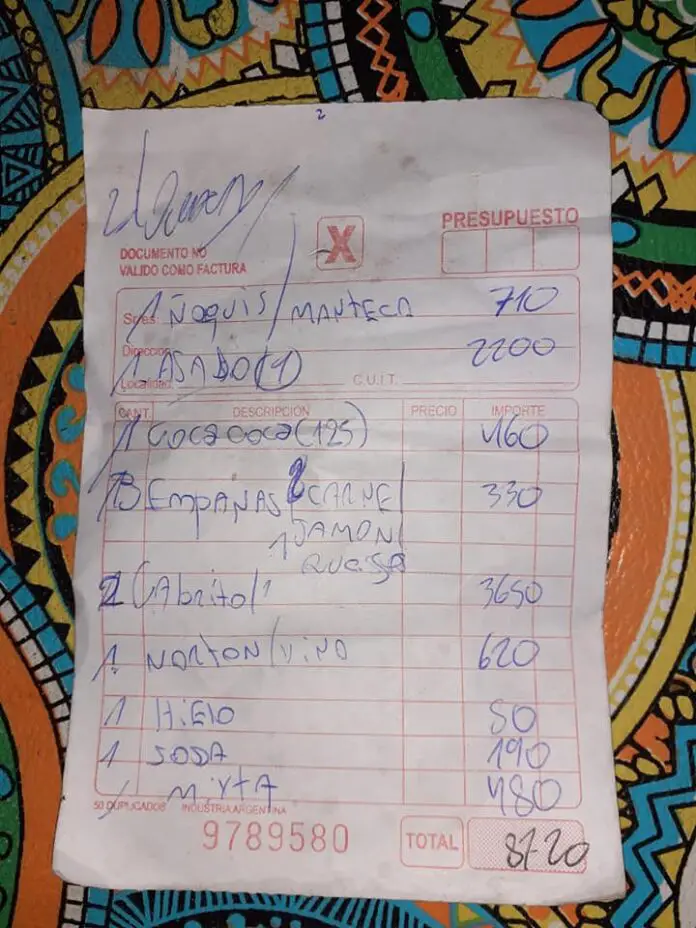 2
PRESUPUESTO
X
DOCUMENTO NO
VALIDO COMO FACTURA
Sres. 1 ÑOQUIS/MANTECA 710
Dirección
1 ASADO (1) 2200
Localidad C.U.I.T.
CANT. DESCRIPCIÓN PRECIO IMPORTE
1 COCA COCA (125) 460
3 EMPANAS 2 CARNE/ 330
1 JAMON/
QUESO
2 CABRITO/1 3650
1 NORTON/VINO 620
1 HIELO 80
1 SODA 190
1 MIXTA 480
50 DUPLICADOS INDUSTRIA ARGENTINA
9789580 TOTAL 8720